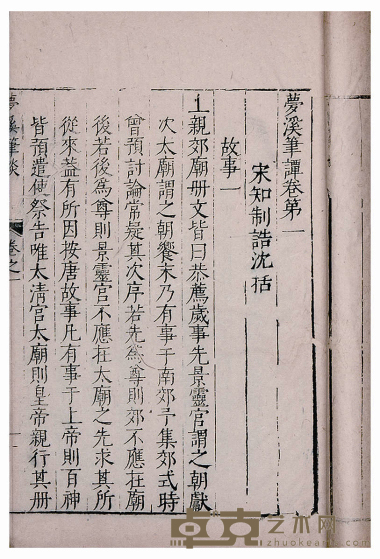 夢溪筆譚卷第一
宋知制誥沈括
故事一
上親郊廟册文皆曰恭薦歲事先景靈宮謂之朝獻
次太廟謂之朝饗末乃有事于南郊予集郊式時
曾預討論常疑其次序若先爲尊則郊不應在廟
後若後爲尊則景靈宮不應在太廟之先求其所
從來蓋有所因按唐故事凡有事于上帝則百神
皆預遣使祭告唯太清宮太廟則皇帝親行其册
夢溪筆談 卷之一
卓克艺术网
zhuokearts.com